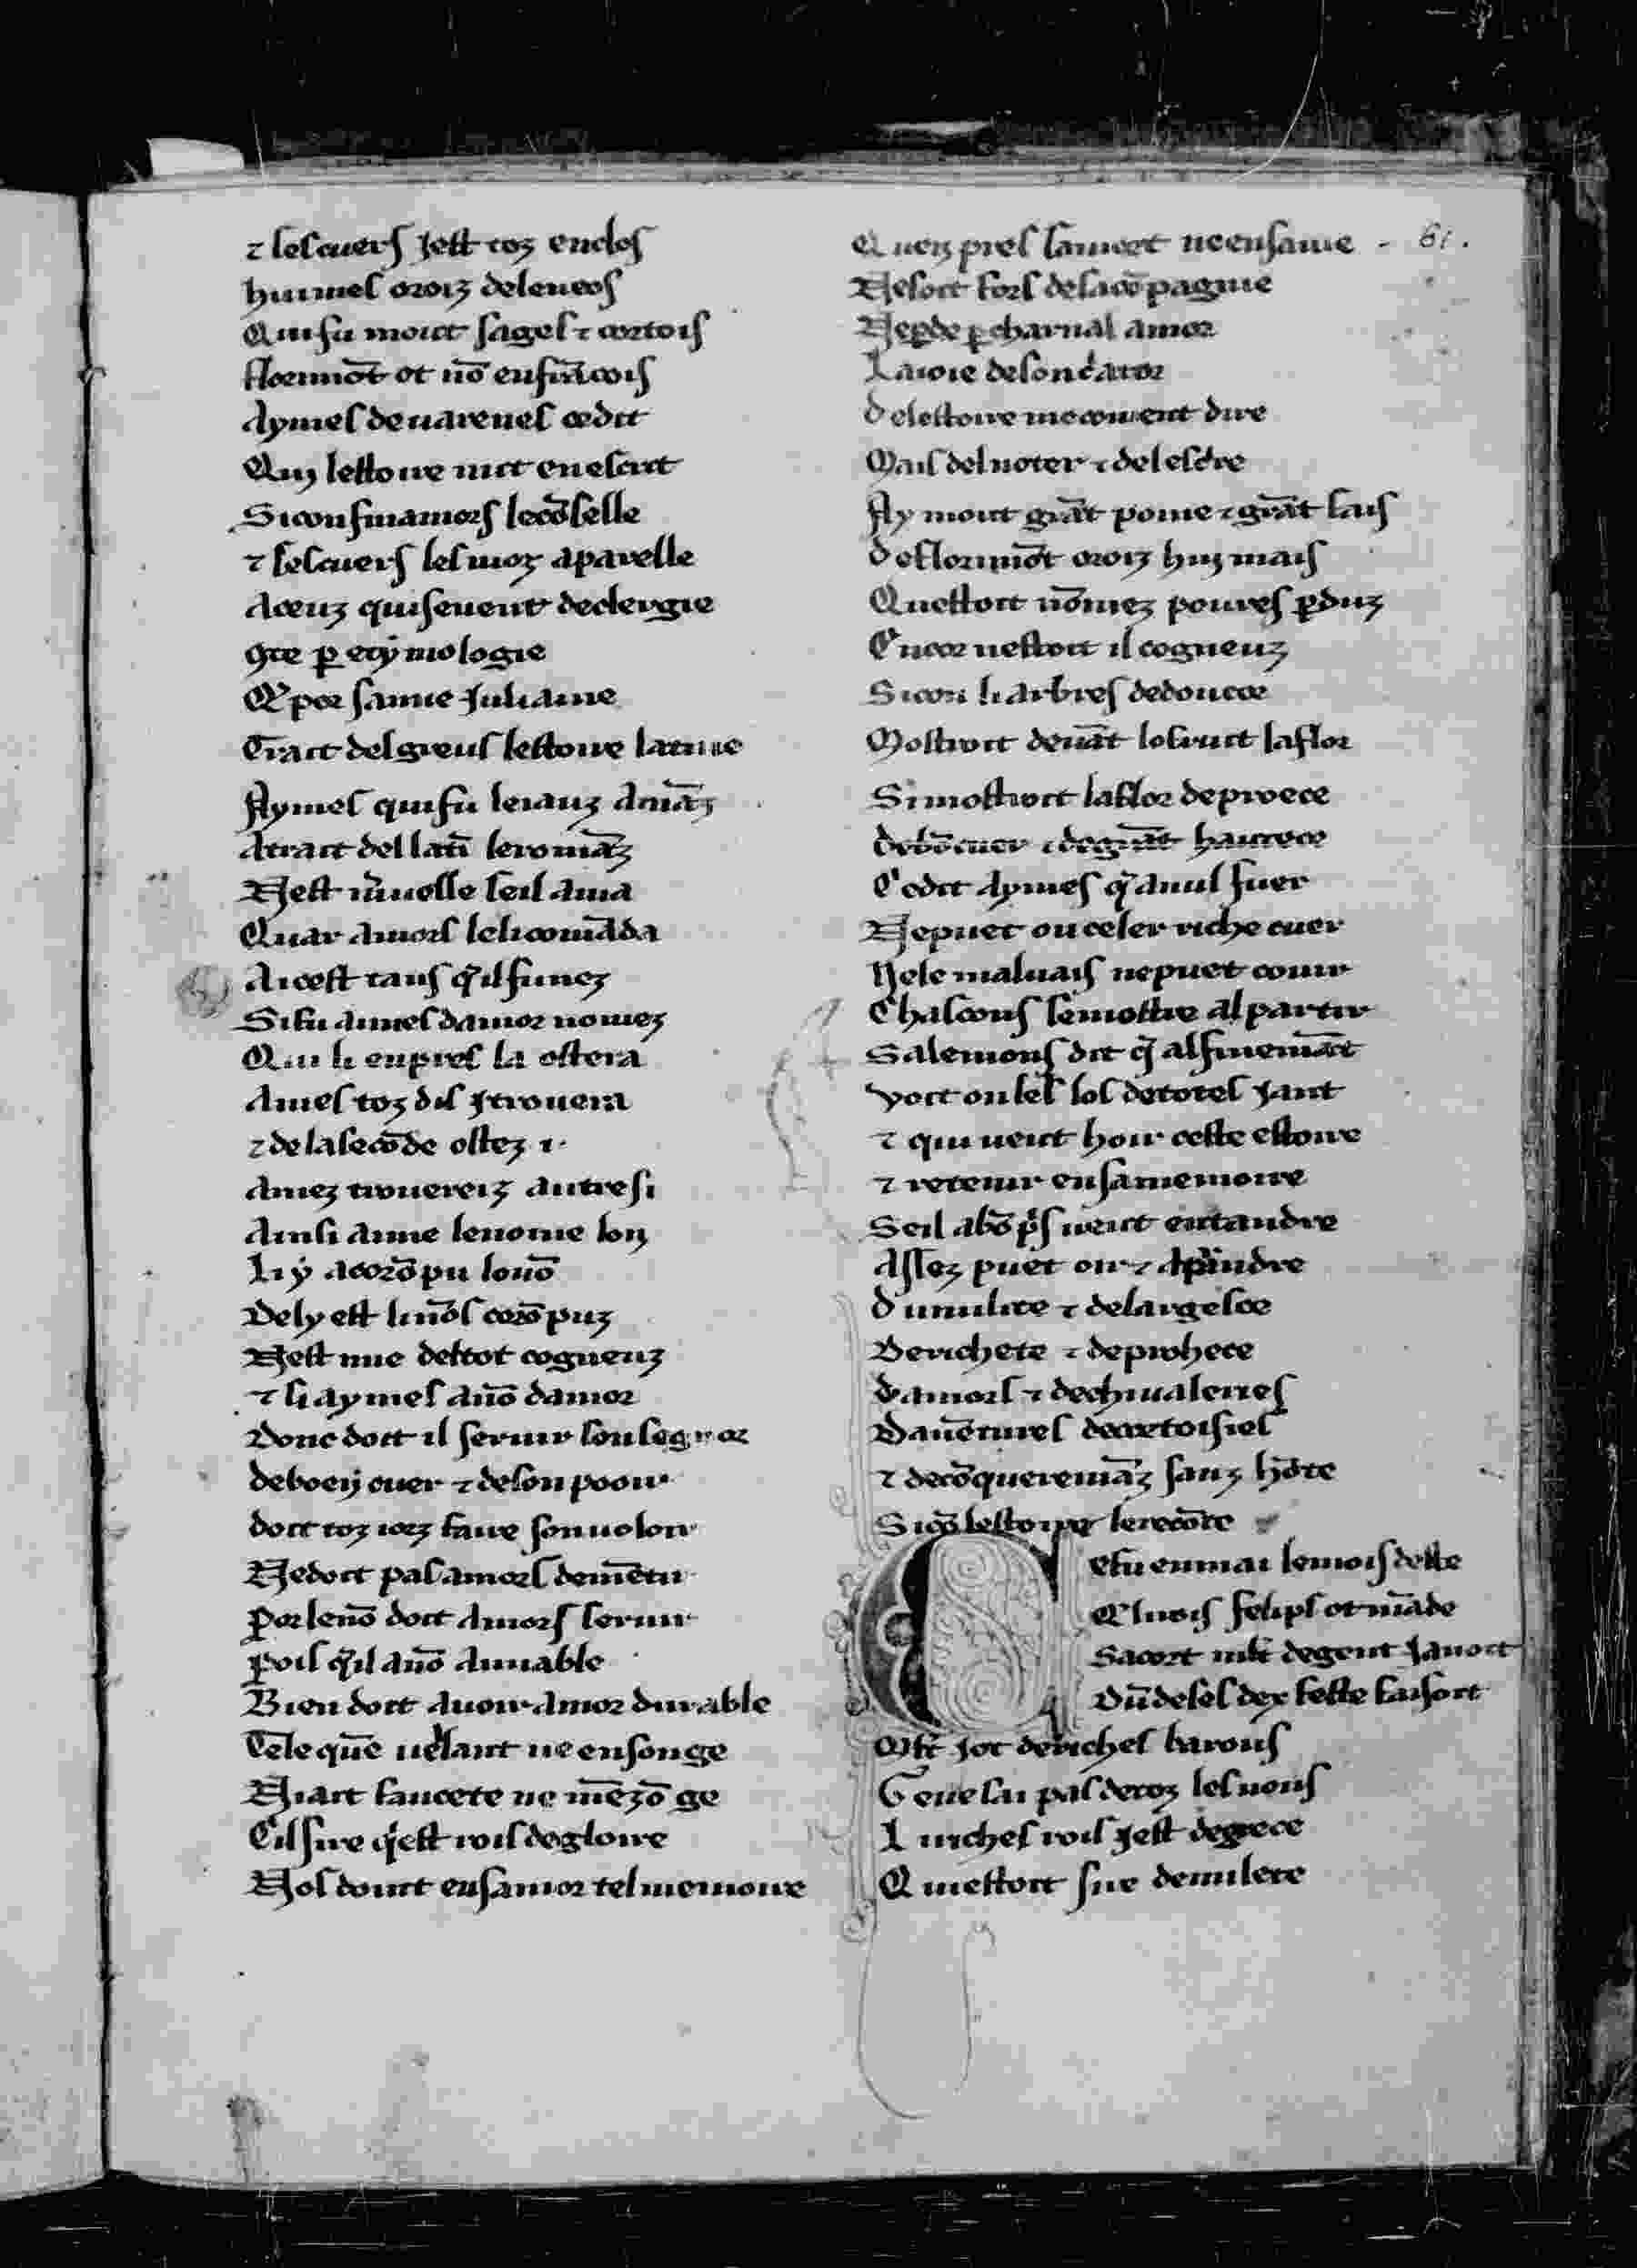 ⁊ les cuers jest toz enclos
huimes oroiz de le
Qui fu mout sages ⁊ cortois
florimōt ot nō en frācois
Aymes de uarenes ce dit
Qui lestoire mit en escrit
Si con fins amors le cōselle
⁊ les cuers les moz aparelle
A ceuz qui seuent de clergie
9te ꝑ etymologie
Q̄ por samie Juliaine
Trait del greus lestoire latine
Aymes qui fu leiauz amāz
Atrait del latī le romāz
Nest m̄uoille seil ama
Quar amors le li comāda
A icest tans q̄ il fu nez
Si fu aimes damor nomez
Qui li enpres la ostera
Ames toz dis j trouera
⁊ de la secōde ostez i
Amez trouereiz autresi
Ainsi aime le nome lon
Li y a corōpu lo nō
Del y est li nōs corōpuz
Nest mie del tot cogneuz
⁊ li aymes a nō damor
Donc doit il seruir son segnor
de boen cuer ⁊ de son pooir
doit toz iorz faire son uoloir
Ne doit pas amors demētir
Por le nō doit amors seruir
Pois q̄ il a nō aimable
Bien doit auoir amor durable
Tele quē uellant ne en songe
Ni ait faucete ne mēzōge
Cil sire q̄ est rois de gloire
Nos doint en samor tel memoire
Quen pres la mort ne en sa uie 61.
Ne soit fors de sa cōpagnie
Ne ꝑde ꝑ charnal amor
La ioie de son c̄ator
De lestoire me couient dire
Mais del noter ⁊ del escrire
Ay mout grāt poine ⁊ grāt fais
De florimōt oroiz hui mais
Questoit nōmez poures ꝑduz
Encor nestoit il cogneuz
Si con li arbres de doucor
Mostroit deuāt lo fruit la flor
Si mostroit la flor de proece
De bō cuer ⁊ de grāt hautece
Ce dit Aymes q̄ a nul fuer
Ne puet on celer riche cuer
Ne le maluais ne puet courir
Chascons se mostre al partir
Salemons dit q̄ al finemāt
Voit on les los de totes jant
⁊ qui ueut hoir ceste estoire
⁊ retenir en sa memoire
Seil a bō p̄s ueut entandre
Assez puet oir ⁊ ap̄ndre
Dumilite ⁊ de largesce
De richete ⁊ de prohece
Damors ⁊ de cheualeries
Dauētures de cortoisies
⁊ de cōqueremāz sanz hōte
Si cō lestoire le recōte
Ce fu en mai le mois deste
Q̄ li rois felips ot māde
Sa cort mlt de gent j auoit
Dū de ses dex feste faisoit
Mlt j ot de riches barons
Ge ne sai pas de toz les nons
Li riches rois j est de grece
Qui estoit sire de nulete